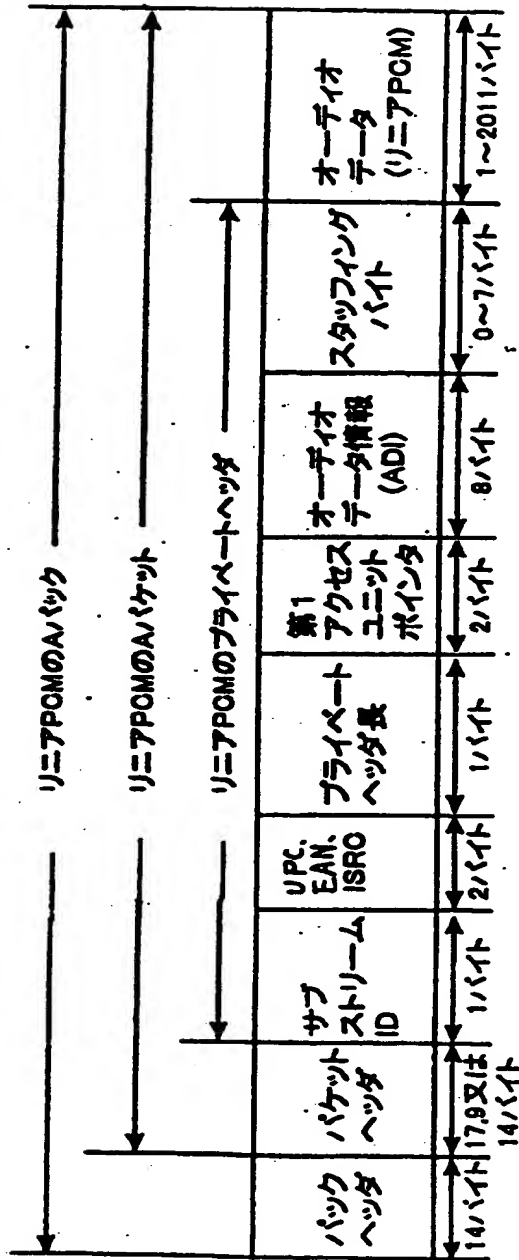 リニアPCMのAパック
リニアPCMのAパケット
リニアPCMのプライベートヘッダ
パック
ヘッダ
パケット
ヘッダ
サブ
ストリーム
ID
UPC,
EAN,
ISRC
プライベート
ヘッダ長
第1
アクセス
ユニット
ポインタ
オーディオ
データ情報
(ADI)
スタッフィング
バイト
オーディオ
データ
(リニアPCM)
14バイト
17,9又は
14バイト
1バイト
2バイト
1バイト
2バイト
8バイト
0~7バイト
1~2011バイト